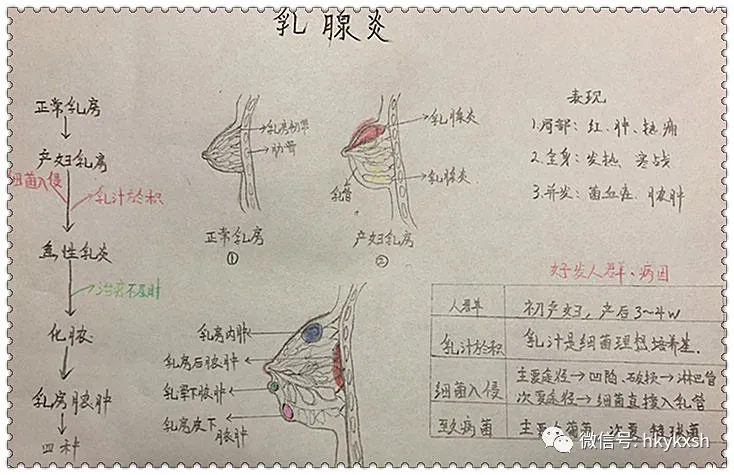 乳腺炎
正常乳房
产妇乳房
细菌入侵
乳汁淤积
急性乳炎
治疗不及时
化脓
乳房脓肿
四种
肋骨
正常乳房
①
乳腺炎
乳腺炎
乳管
产妇乳房
②
乳房内脓肿
乳房后脓肿
乳晕下脓肿
乳房皮下
脓肿
表现
1.局部：红、肿、热痛
2.全身：发热 寒战
3.并发：菌血症、脓肿
好发人群、病因
人群 初产妇，产后3~4w
乳汁淤积 乳汁是细菌理想培养基.
细菌入侵 主要途径→凹陷、破损→淋巴管
次要途径→细菌直接入乳管
致病菌 主要
次要 链球菌
微信号: hkykxsh